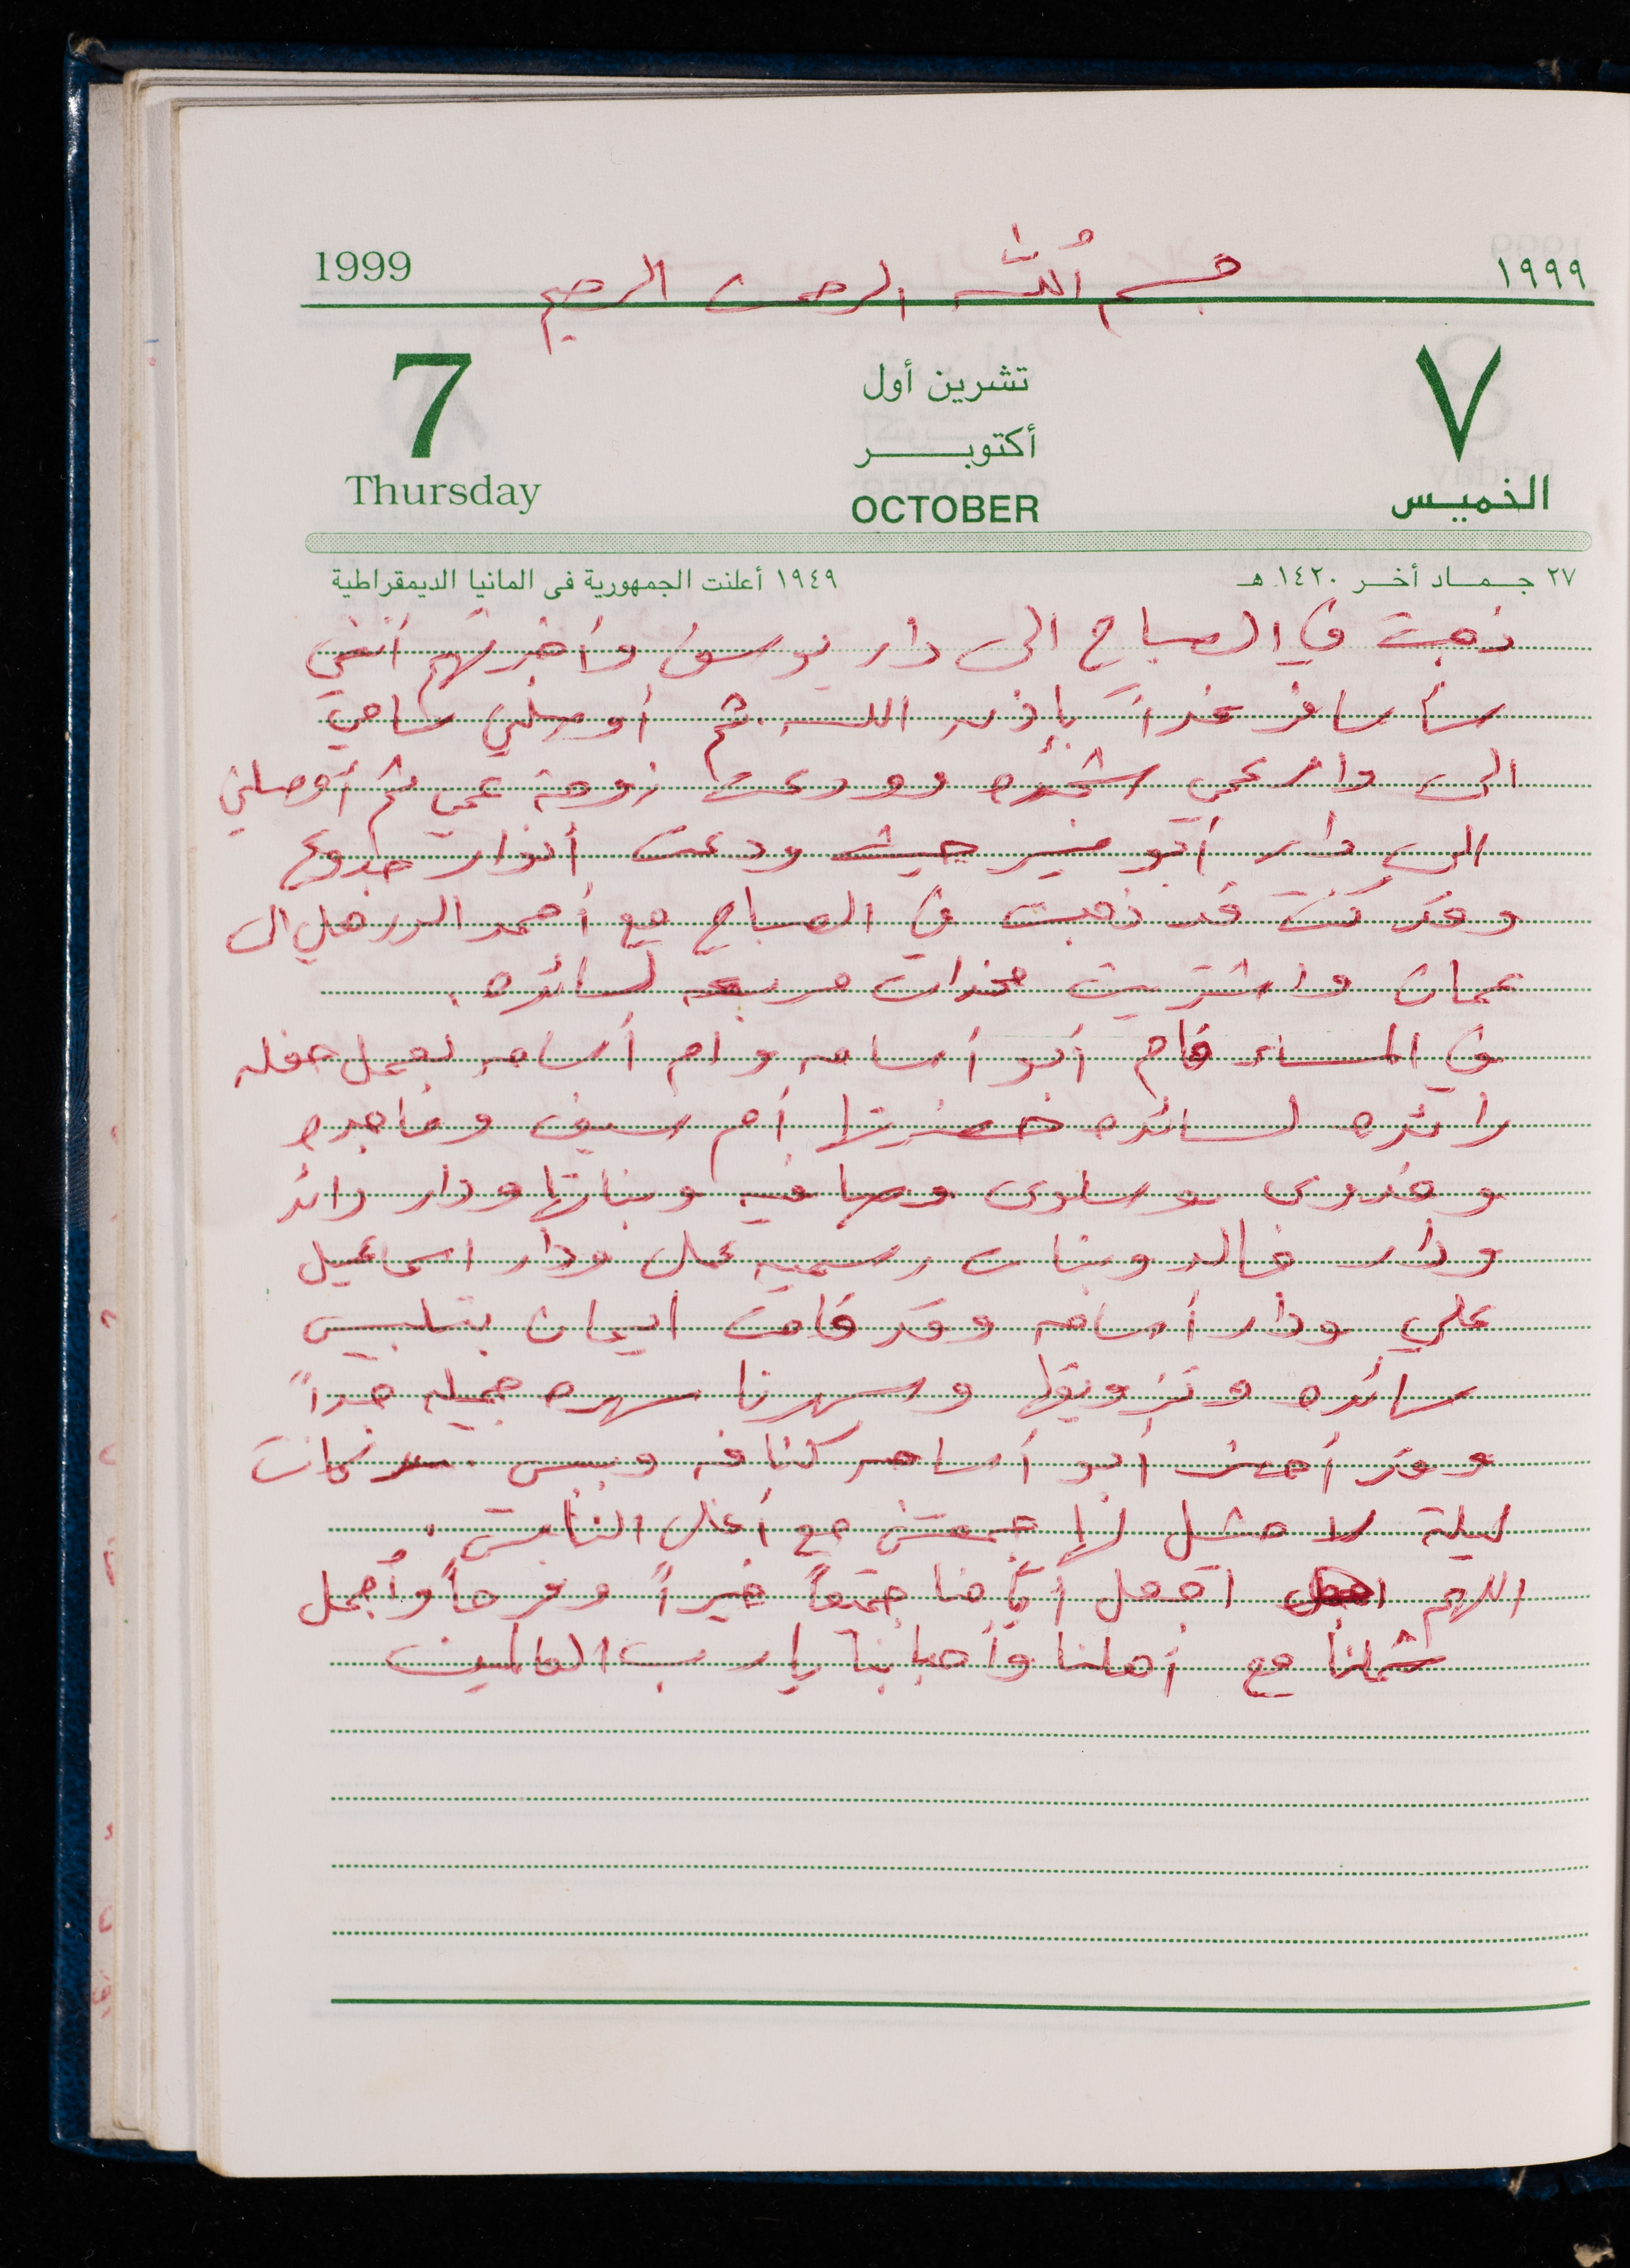 1999 بسم الله الرحمن الرحيم ١٩٩٩
7 تشرين أول ٧
أكتوبر
Thursday OCTOBER الخميس
٢٧ جماد أخر ١٤٢٠ هـ ١٩٤٩ أعلنت الجمهورية في المانيا الديمقراطية
ذهبت في الصباح الى دار يوسف وأخبرتهم أنني
سأسافر غداً بإذن الله. ثم أوصلني سامي
الى دار عمي شحده وودعت زوجة عمي ثم أوصلني
الى دار أبو منير حيث ودعت أنوار جدوع
وقد كنت قد ذهبت في الصباح مع أحمد الى
عمان واشتريت مخدات مربعه لسائده.
في المساء قام أبو أسامه وام أسامه بعمل حفله
رائده لسائده حضرتها أم سيف وماجده
وفدوى وسلوى وصافيه وبناتها ودار رائد
ودار خالد وبنات رسميه علي ودار اسماعيل
علي ودار أسامه وقد قامت ايمان بتلبيس
سائده وتزويقها وسهرنا سهره جميله جداً
وقد أحضر أبو أسامه كنافه وببس. وكانت
ليلة لا مثل لها جمعتني مع أغلى الناس.
اللهم اجعل أيامنا جميعاً خيراً وفرحاً وأجمل
شملنا مع أهلنا وأحبابنا يا رب العالمين